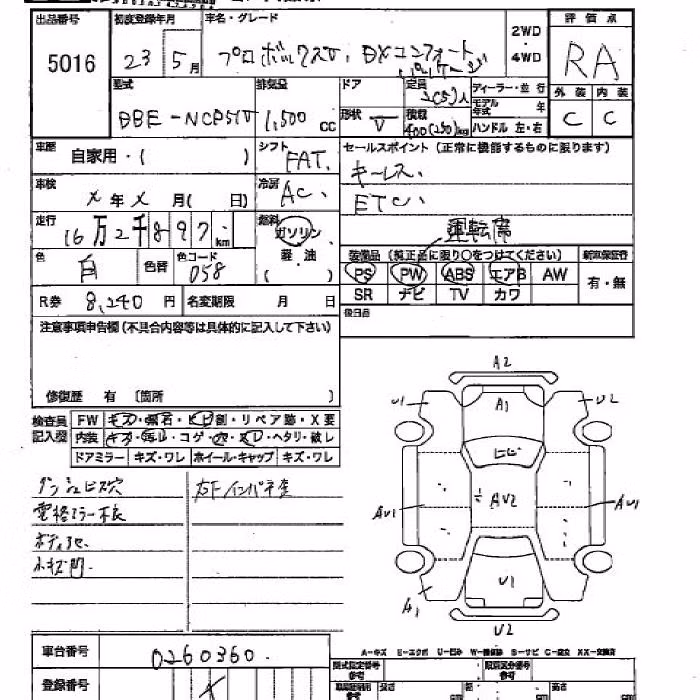 出品番号 初度登録年月 車名・グレード 2WD・4WD 評価点
5016 23年5月 プロボックスV、DXコンフォートパッケージ RA
型式 排気量 ドア 定員 ディーラー・並行 外装 内装
DBE-NCP51V 1,500cc 形状 V 積載 400(250)kg モデル年式 年 ハンドル 左・右 C C
車歴 自家用・( ) シフト FAT. セールスポイント (正常に機能するものに限ります)
車検 ×年×月( 日) 冷房 AC、 キーレス、
ETC、
走行 16万2千897km 燃料 ガソリン 軽油 ( ) 運転席
色 白 色替 色コード 058 装備品 (純正品に限り○をつけてください) 新車保証書
PS PW ABS エアB AW 有・無
R券 8,240円 名変期限 月 日 SR ナビ TV カワ
注意事項申告欄 (不具合内容等は具体的に記入して下さい) 後日品
修復歴 有 〔箇所 〕
検査員記入欄 FW キズ・飛石・ヒビ割・リペア跡・X要
内装 キズ・汚れ・コゲ・穴・スレ・ヘタリ・破レ
ドアミラー キズ・ワレ ホイール・キャップ キズ・ワレ
ダッシュビス穴 右Fインパネ歪
電格ミラー不良
ボディ
小キズ凹
A2
U1 A1 U2
AU1 AU2 AU1
A1 U1
U2
A-キズ E-エクボ U-凹み W-補修跡 S-サビ C-腐食 XX-交換済
車台番号 0260360.
型式指定番号 参考 類別区分番号 参考
登録番号 長さ 幅 高さ